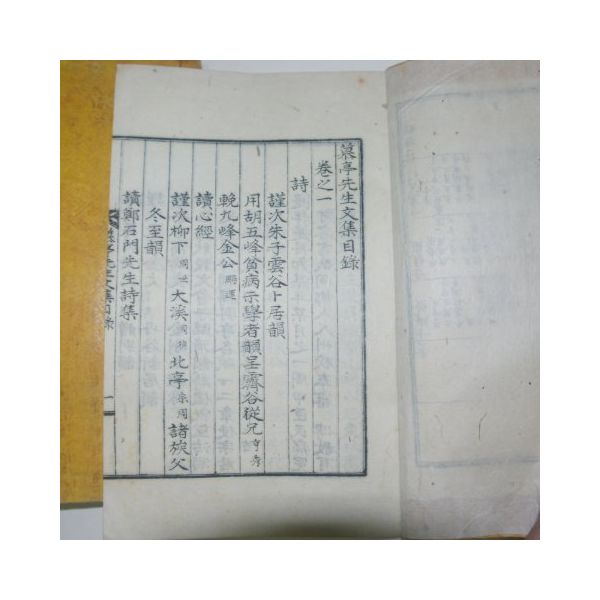 慕亭先生文集目錄
卷之一
詩
謹次朱子雲谷卜居韻
用胡五峰貧病示學者韻呈霽谷從兄
輓九峰金公
讀心經
謹次柳下 大溪 北亭 諸族父
冬至韻
讀鄭石門先生詩集
慕亭先生文集目錄 一